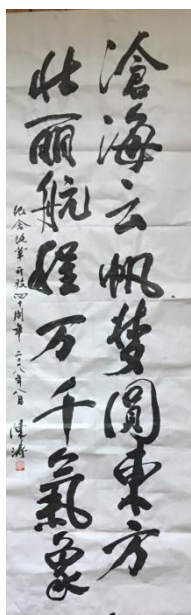 滄海云帆梦圓東方
壮丽航程万千氣象
纪念改革开放四十周年 二〇一八年八月
陈涛